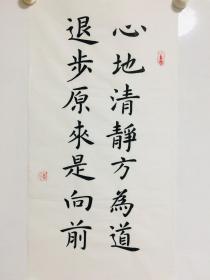 心地清靜方為道
退步原來是向前